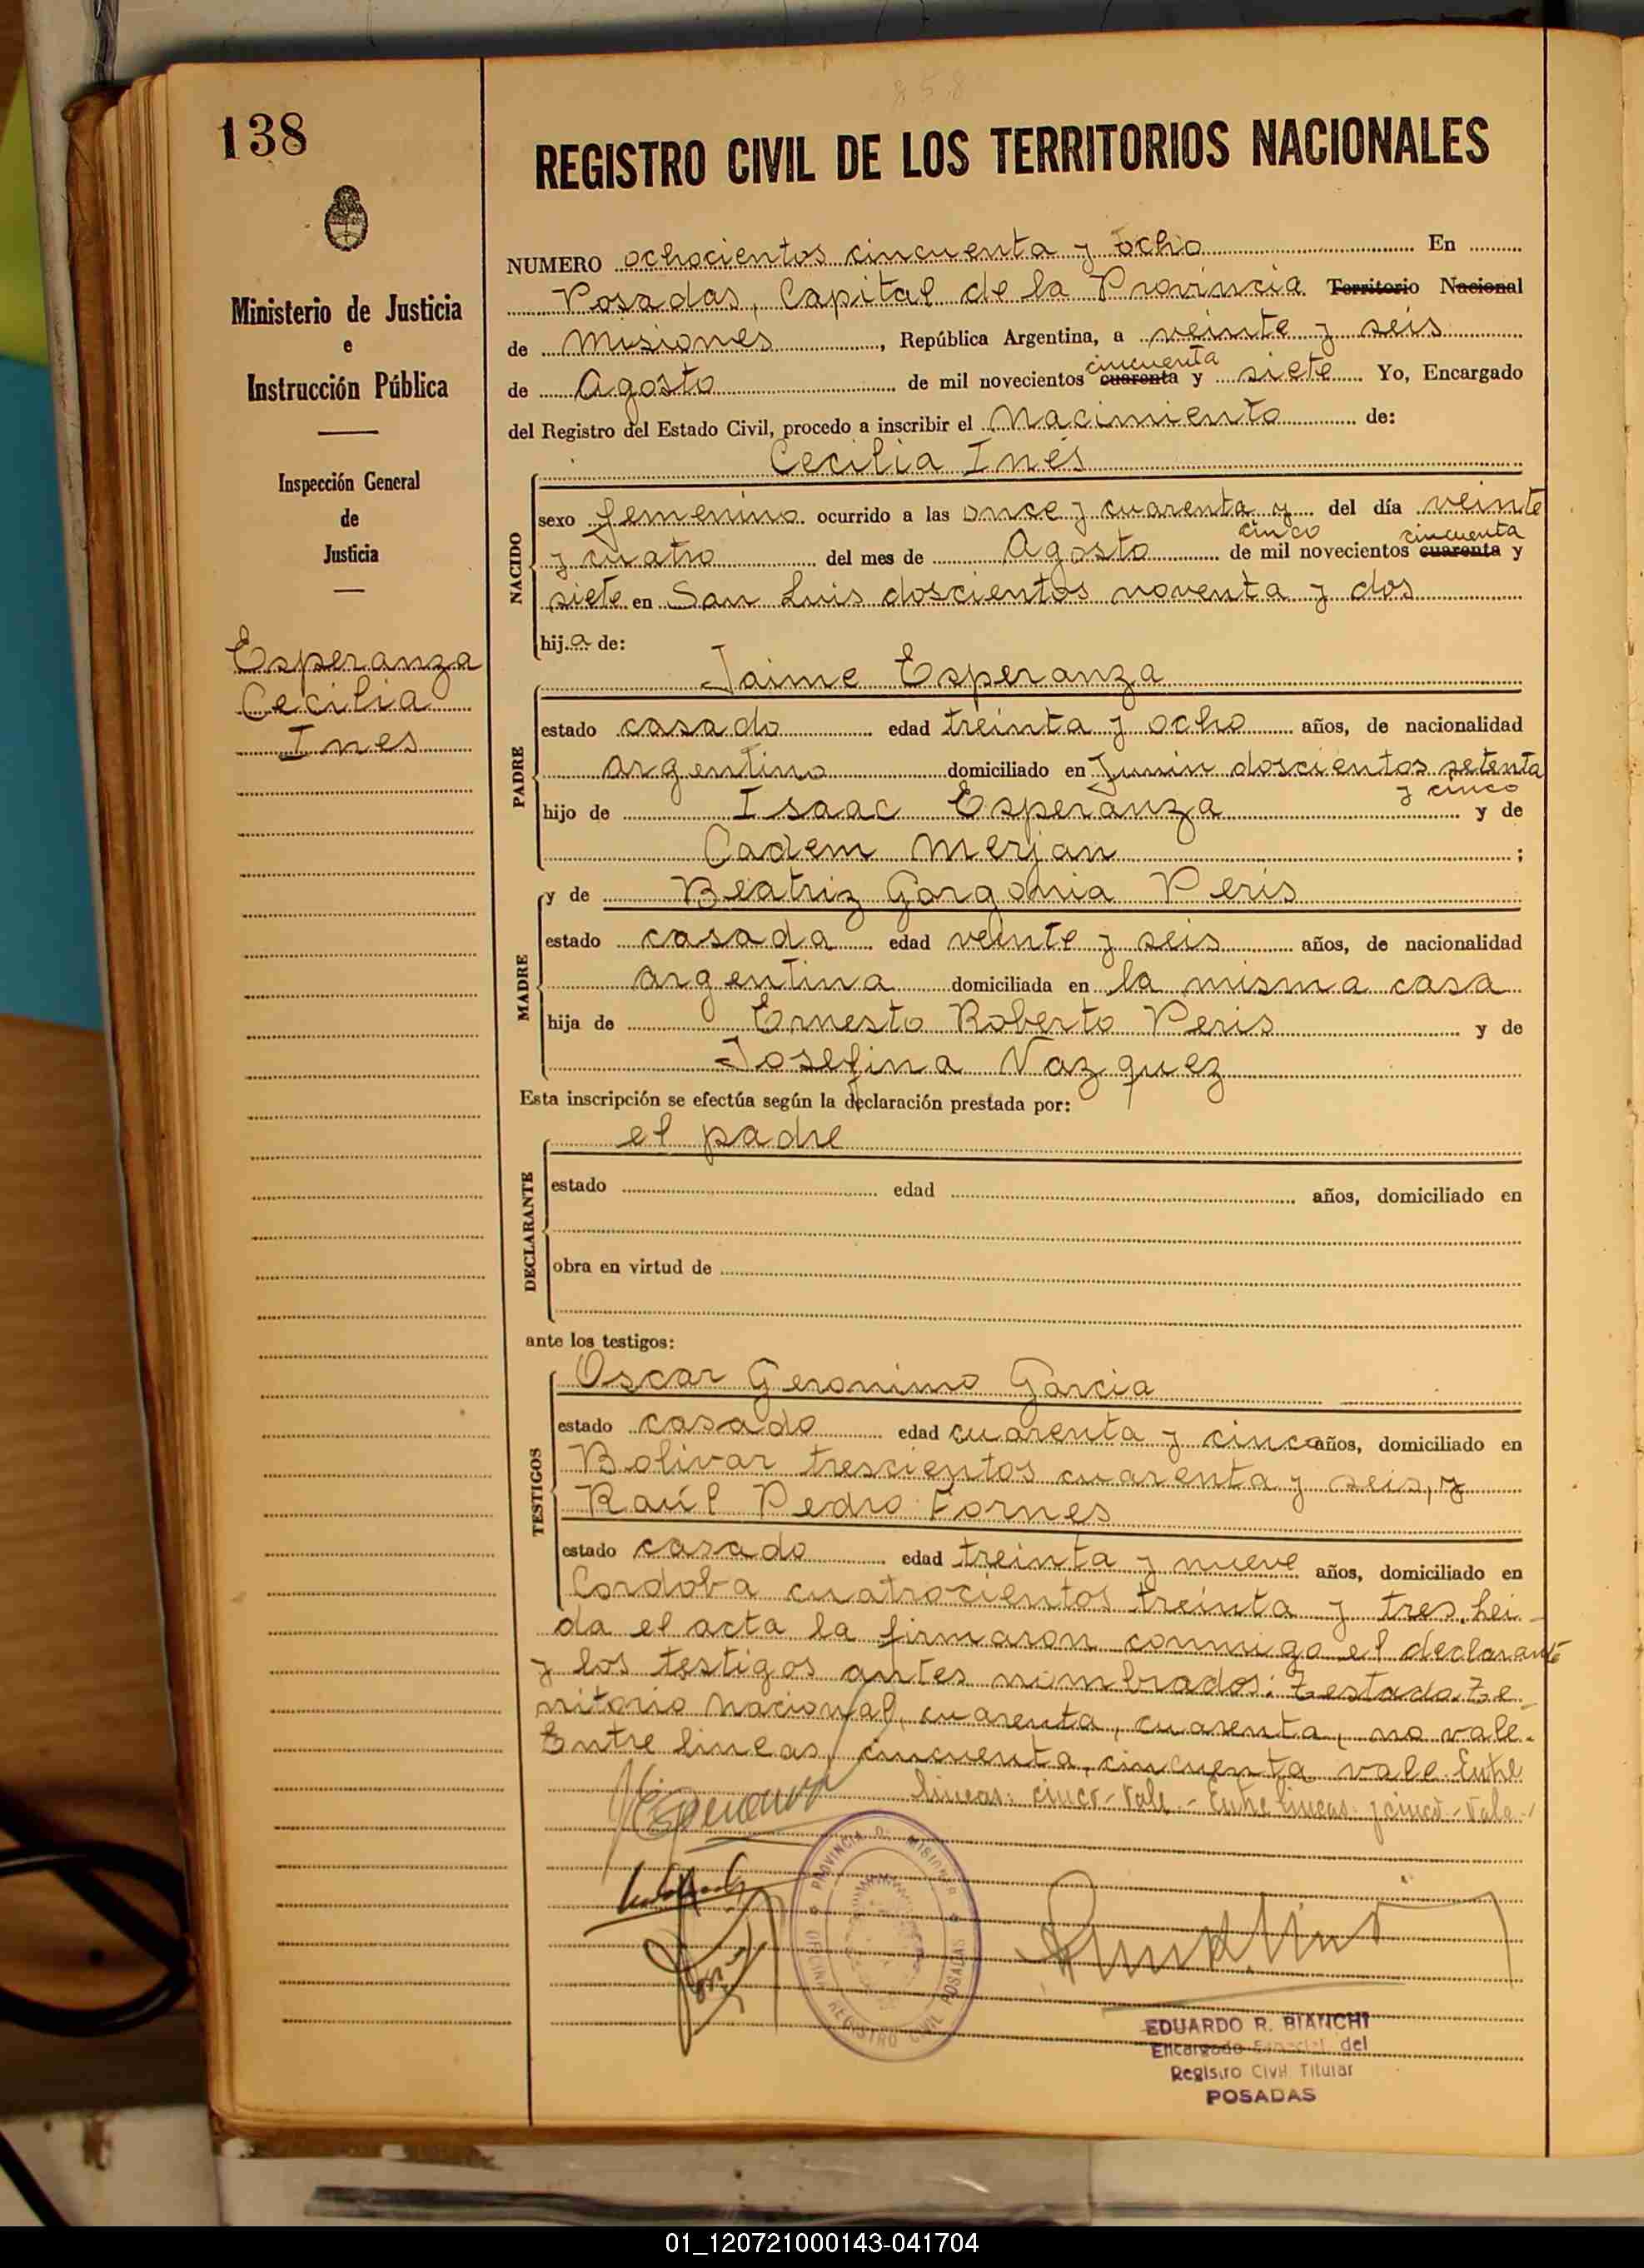 858
138
REGISTRO CIVIL DE LOS TERRITORIOS NACIONALES
NUMERO ochocientos cincuenta y ocho En
Posadas, Capital de la Provincia Territorio Nacional
de Misiones, República Argentina, a veinte y seis
cincuenta
de Agosto de mil novecientos cuarenta y siete Yo, Encargado
del Registro del Estado Civil, procedo a inscribir el Nacimiento de:
Cecilia Inés
Ministerio de Justicia
e
Instrucción Pública
Inspección General
de
Justicia
Esperanza
Cecilia
Ines
NACIDO
sexo femenino ocurrido a las once y cuarenta y del día veinte
cinco cincuenta
y cuatro del mes de Agosto de mil novecientos cuarenta y
siete en San Luis doscientos noventa y dos
hija de:
PADRE
Jaime Esperanza
estado casado edad treinta y ocho años, de nacionalidad
argentino domiciliado en Junin doscientos setenta
y cinco
hijo de Isaac Esperanza y de
Cadem Merjan;
MADRE
y de Beatriz Gorgonia Peris
estado casada edad veinte y seis años, de nacionalidad
argentina domiciliada en la misma casa
hija de Ernesto Roberto Peris y de
Josefina Vazquez
Esta inscripción se efectúa según la declaración prestada por:
DECLARANTE
el padre
estado edad años, domiciliado en
obra en virtud de
ante los testigos:
TESTIGOS
Oscar Geronimo Garcia
estado casado edad cuarenta y cinco años, domiciliado en
Bolivar trescientos cuarenta y seis, y
Raúl Pedro Fornes
estado casado edad treinta y nueve años, domiciliado en
Cordoba cuatrocientos treinta y tres. Lei-
da el acta la firmaron conmigo el declarante
y los testigos antes nombrados: Testado: Te-
rritorio Nacional, cuarenta, cuarenta, no vale.
Entre lineas, cincuenta, cincuenta vale. Entre
lineas: cinco - Vale - Entre lineas: y cinco - Vale -
PROVINCIA DE MISIONES
OFICINA REGISTRO CIVIL POSADAS
EDUARDO R. BIANCHI
Encargado Especial del
Registro Civil Titular
POSADAS
01_120721000143-041704